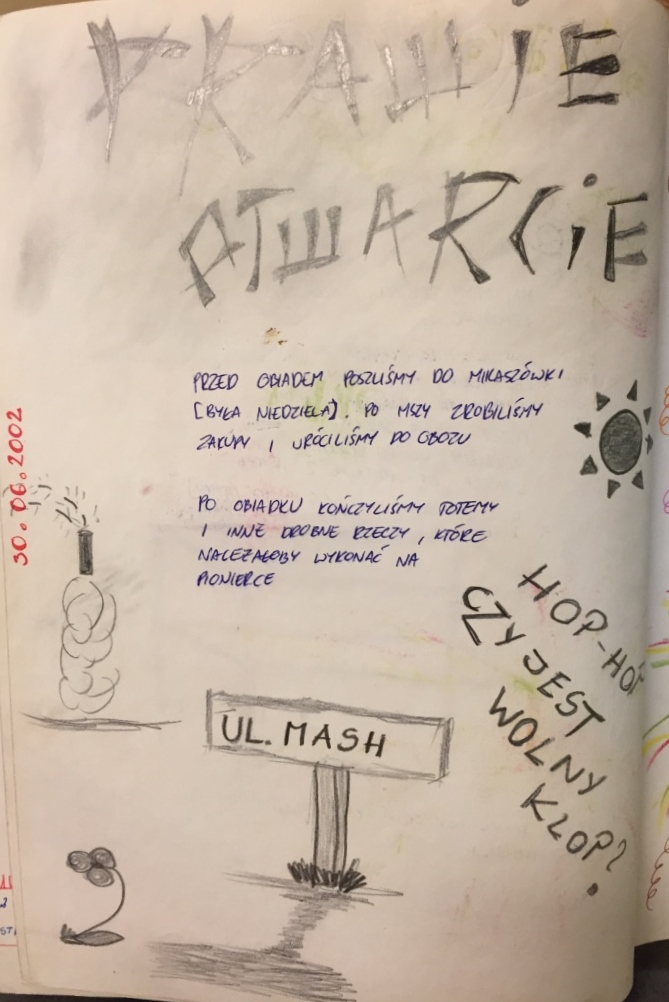 PRAWIE
OTWARCIE
PRZED OBIADEM POSZLIŚMY DO MIKASZÓWKI
[BYŁA NIEDZIELA]. PO MSZY ZROBILIŚMY
ZAKUPY I WRÓCILIŚMY DO OBOZU
30.06.2002
PO OBIADKU KOŃCZYLIŚMY TOTEMY
I INNE DROBNE RZECZY, KTÓRE
NALEŻAŁOBY WYKONAĆ NA
PIONIERCE
HOP-HOP
CZY JEST
WOLNY
KLOP?
UL. MASH